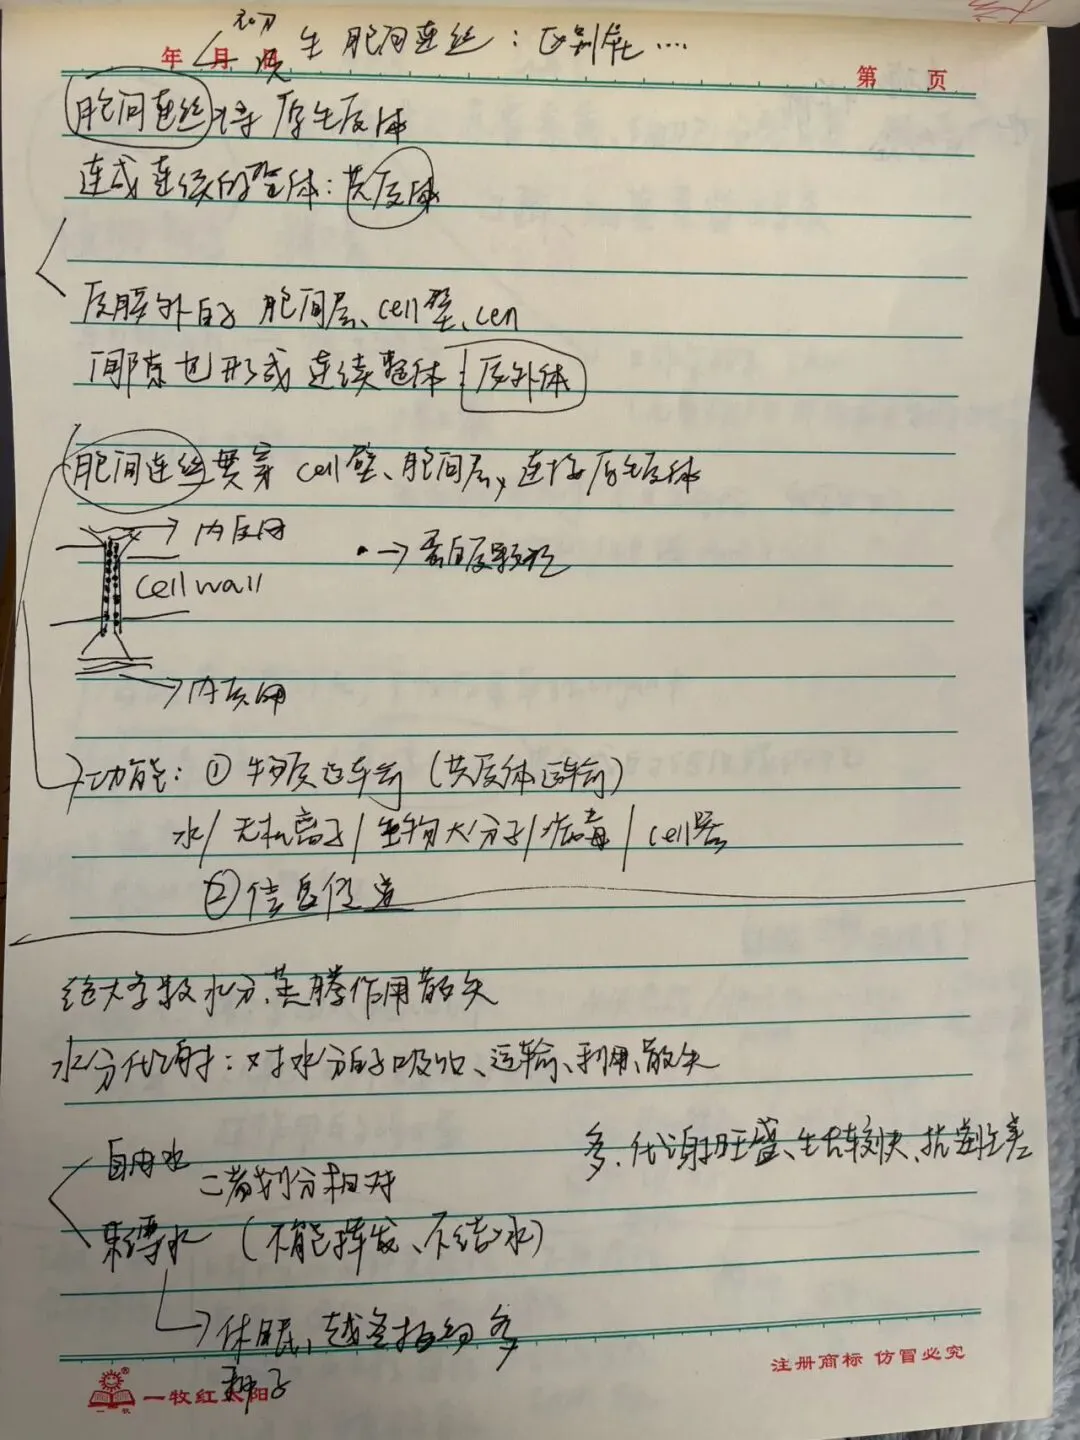 年 月 日
初
次 生 胞间连丝：区别在....
第 页
胞间连丝将原生质体
连成连续的整体：共质体
质膜外的 胞间层、cell壁、cell
间隙也形成连续整体：质外体
胞间连丝贯穿 cell壁、胞间层，连接原生质体
→内质网
•→蛋白质颗粒
cell wall
→内质网
功能：①物质运输（共质体运输）
水/无机离子/生物大分子/病毒/cell器
②信息传递
绝大多数水分、蒸腾作用散失
水分代谢：对水分的吸收、运输、利用、散失
自由水 多、代谢旺盛、生长较快、抗逆性差
二者划分相对
束缚水（不能挥发、不结冰）
→休眠、越冬植物 多
种子
一牧红太阳
注册商标 仿冒必究